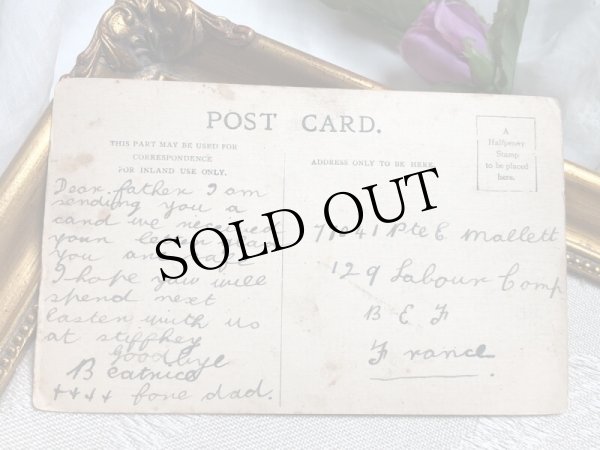 POST CARD.
THIS PART MAY BE USED FOR
CORRESPONDENCE
FOR INLAND USE ONLY.
ADDRESS ONLY TO BE HERE
A
Halfpenny
Stamp
to be placed
here.
Dear father I am
sending you a
card we received
your letter
you are
I hope you will
spend next
easter with us
at stiffkey
Goodbye
Beatrice
++++ fore dad.
Pte E Mallett
129 Labour Comp
B E F
France
SOLD OUT